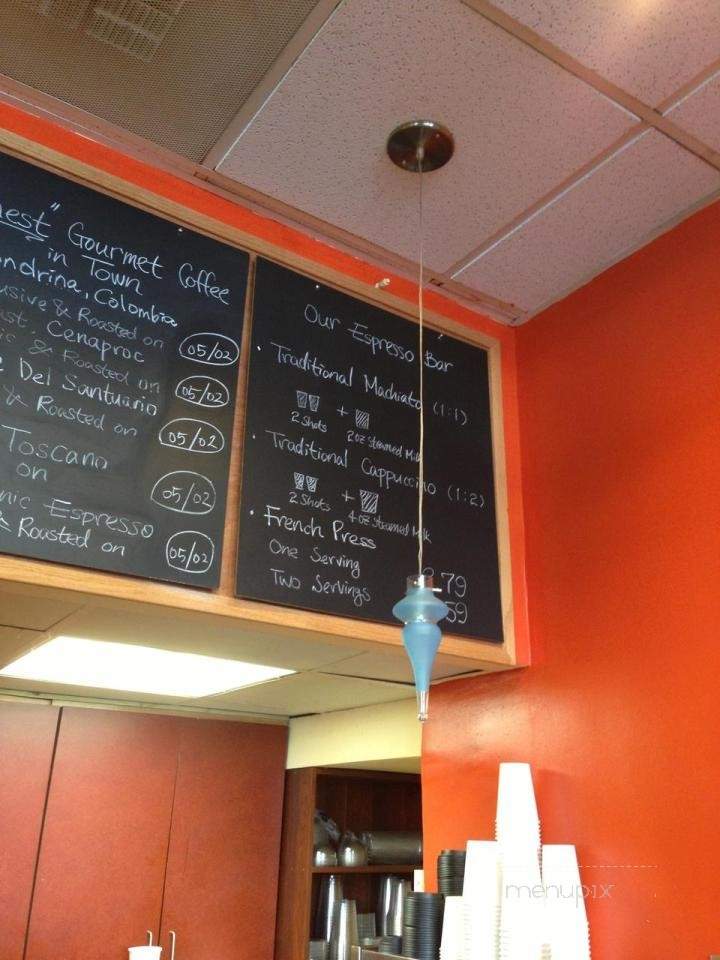 est" Gourmet Coffee
in Town
ndrina, Colombia
usive & Roasted on
05/02
st. Cenaproc
ic & Roasted on
05/02
Del Santuario
& Roasted on
05/02
Toscano
on
05/02
nic Espresso
& Roasted on
05/02
Our Espresso Bar
• Traditional Machiato (1:1)
+
2 Shots 2oz Steamed Milk
• Traditional Cappuccino (1:2)
+
2 Shots 4oz Steamed Milk
• French Press
One Serving 79
Two Servings 59
menupix